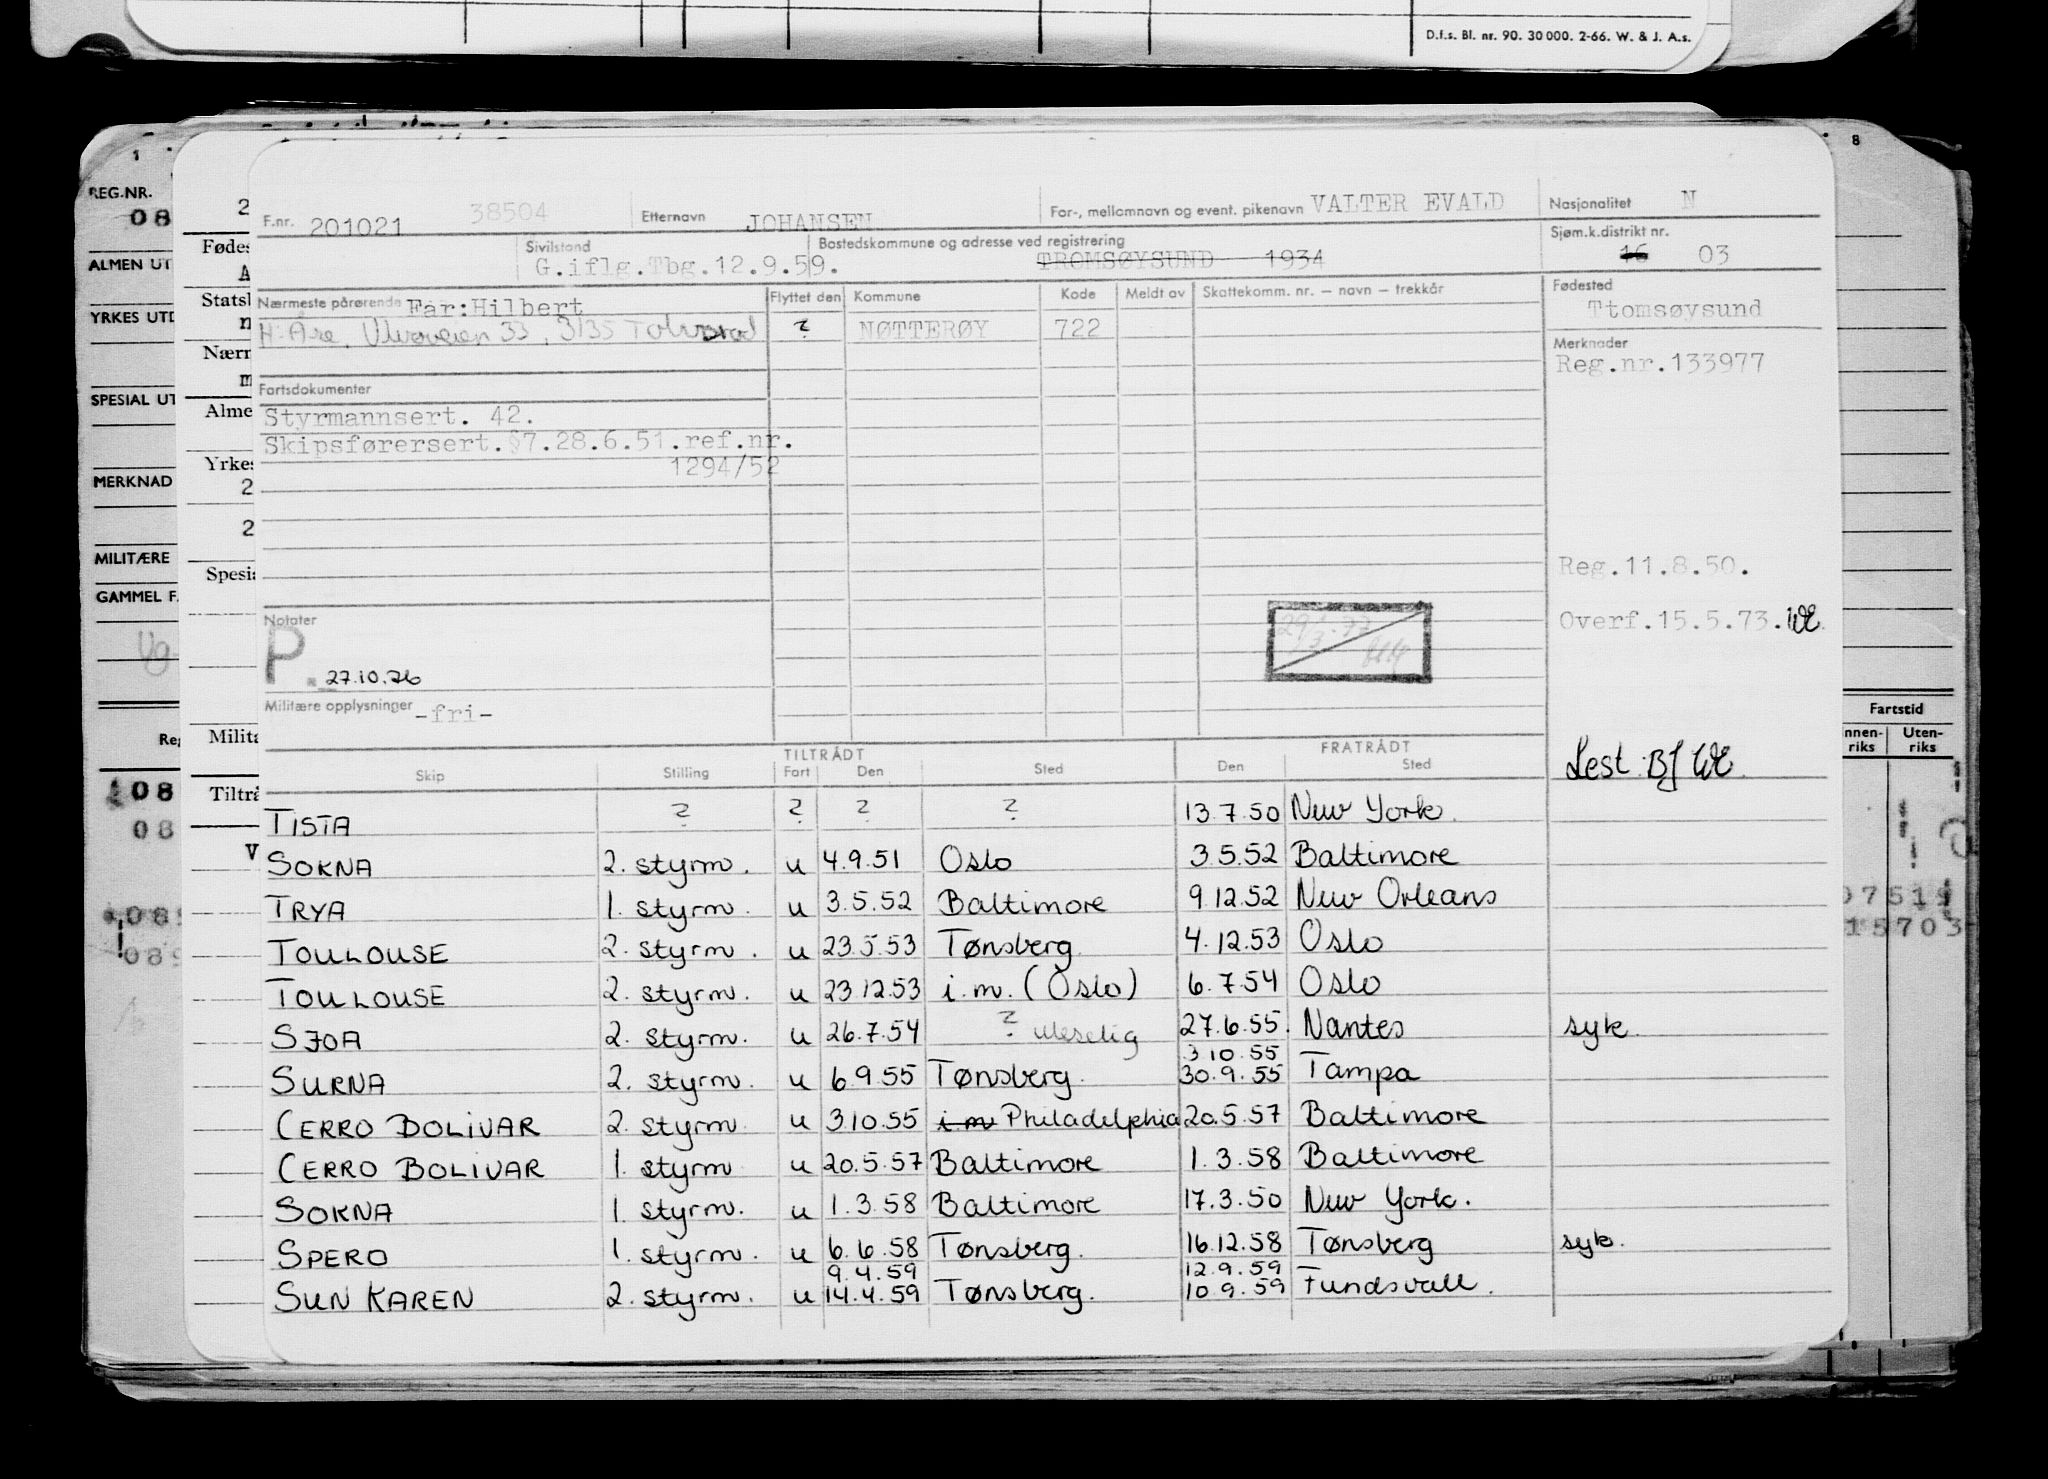 D.f.s. Bl. nr. 90. 30 000. 2-66. W. & J. A.s.
1 8
REG.NR.
08
ALMEN UT
YRKES UTD
SPESIAL UT
MERKNAD
MILITÆRE
GAMMEL F
2
Fødes
Statsl
Nærn
Alme
Yrkes
2
2
Spesia
Milita
Tiltrå
F.nr. 201021 38504 Etternavn JOHANSEN For-, mellomnavn og event. pikenavn VALTER EVALD Nasjonalitet N
Sivilstand G.iflg.Tbg.12.9.59. Bostedskommune og adresse ved registrering TROMSØYSUND 1934 Sjøm.k.distrikt nr. 16 03
Nærmeste pårørende Far:Hilbert Flyttet den Kommune Kode Meldt av Skattekomm. nr. – navn – trekkår Fødested Ttomsøysund
H: Åre, 33, 3135 ? NØTTERØY 722
Merknader
Reg.nr.133977
Fartsdokumenter
Styrmannsert. 42.
Skipsførersert.§7.28.6.51.ref.nr.
1294/52
Reg.11.8.50.
Notater
P. 27.10.76
Overf.15.5.73.WE.
Militære opplysninger -fri-
Lest: Bf WE.
TILTRÅDT FRATRÅDT
Skip Stilling Fart Den Sted Den Sted
TISTA ? ? ? ? 13.7.50 New York.
SOKNA 2. styrm. u 4.9.51 Oslo 3.5.52 Baltimore
TRYA 1. styrm. u 3.5.52 Baltimore 9.12.52 New Orleans
TOULOUSE 2. styrm. u 23.5.53 Tønsberg 4.12.53 Oslo
TOULOUSE 2. styrm. u 23.12.53 i.m. (Oslo) 6.7.54 Oslo
SJOA 2. styrm. u 26.7.54 ? uleselig 27.6.55. Nantes syk.
3.10.55
SURNA 2. styrm. u 6.9.55 Tønsberg. 30.9.55 Tampa
CERRO BOLIVAR 2. styrm. u 3.10.55 i.m Philadelphia 20.5.57 Baltimore
CERRO BOLIVAR 1. styrm u 20.5.57 Baltimore 1.3.58 Baltimore
SOKNA 1. styrm. u 1.3.58 Baltimore 17.3.50 New York.
SPERO 1. styrm. u 6.6.58 Tønsberg. 16.12.58 Tønsberg syk.
9.4.59 12.9.59
SUN KAREN 2. styrm. u 14.4.59 Tønsberg. 10.9.59 Fundsvall.
Fartstid
nnen-riks Uten-riks
07519
15703
08
08
089
089